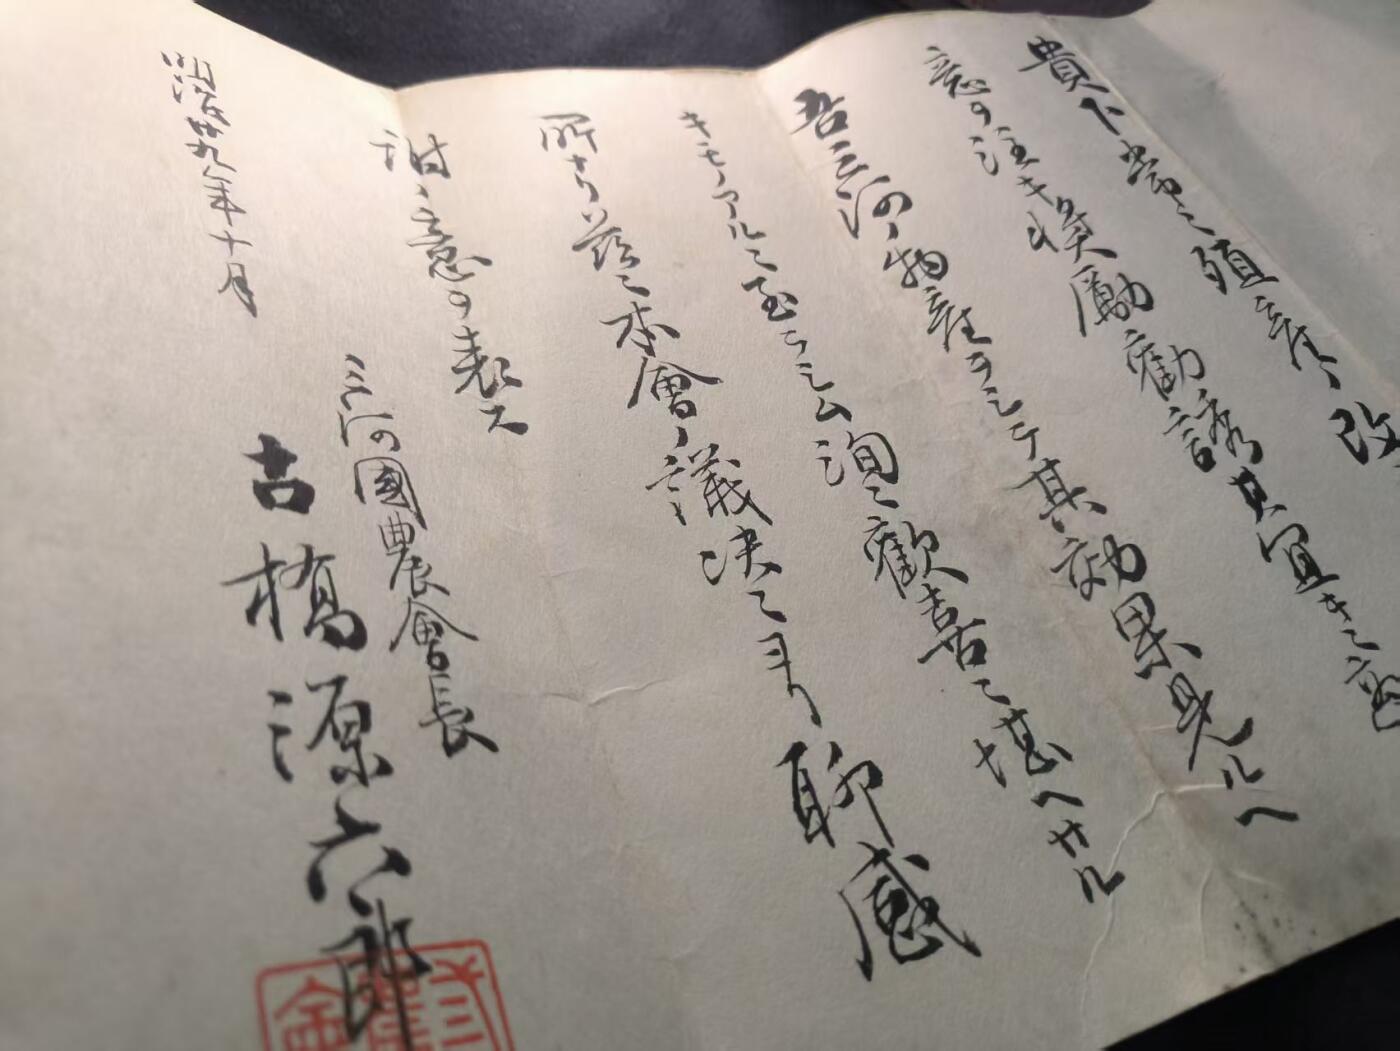 貴下常ニ殖産ノ改
意ヲ注キ奨勵勸誘其宜キニ適
吾三河ノ物産ヲシテ其効果見ルヘ
キモノアルニ至ラシム洵ニ歡喜ニ堪ヘサル
所ナリ茲ニ本會ノ議決ニヨリ聊感
謝ノ意ヲ表ス
明治廿九年十月
三河國農會長
古橋源六郎